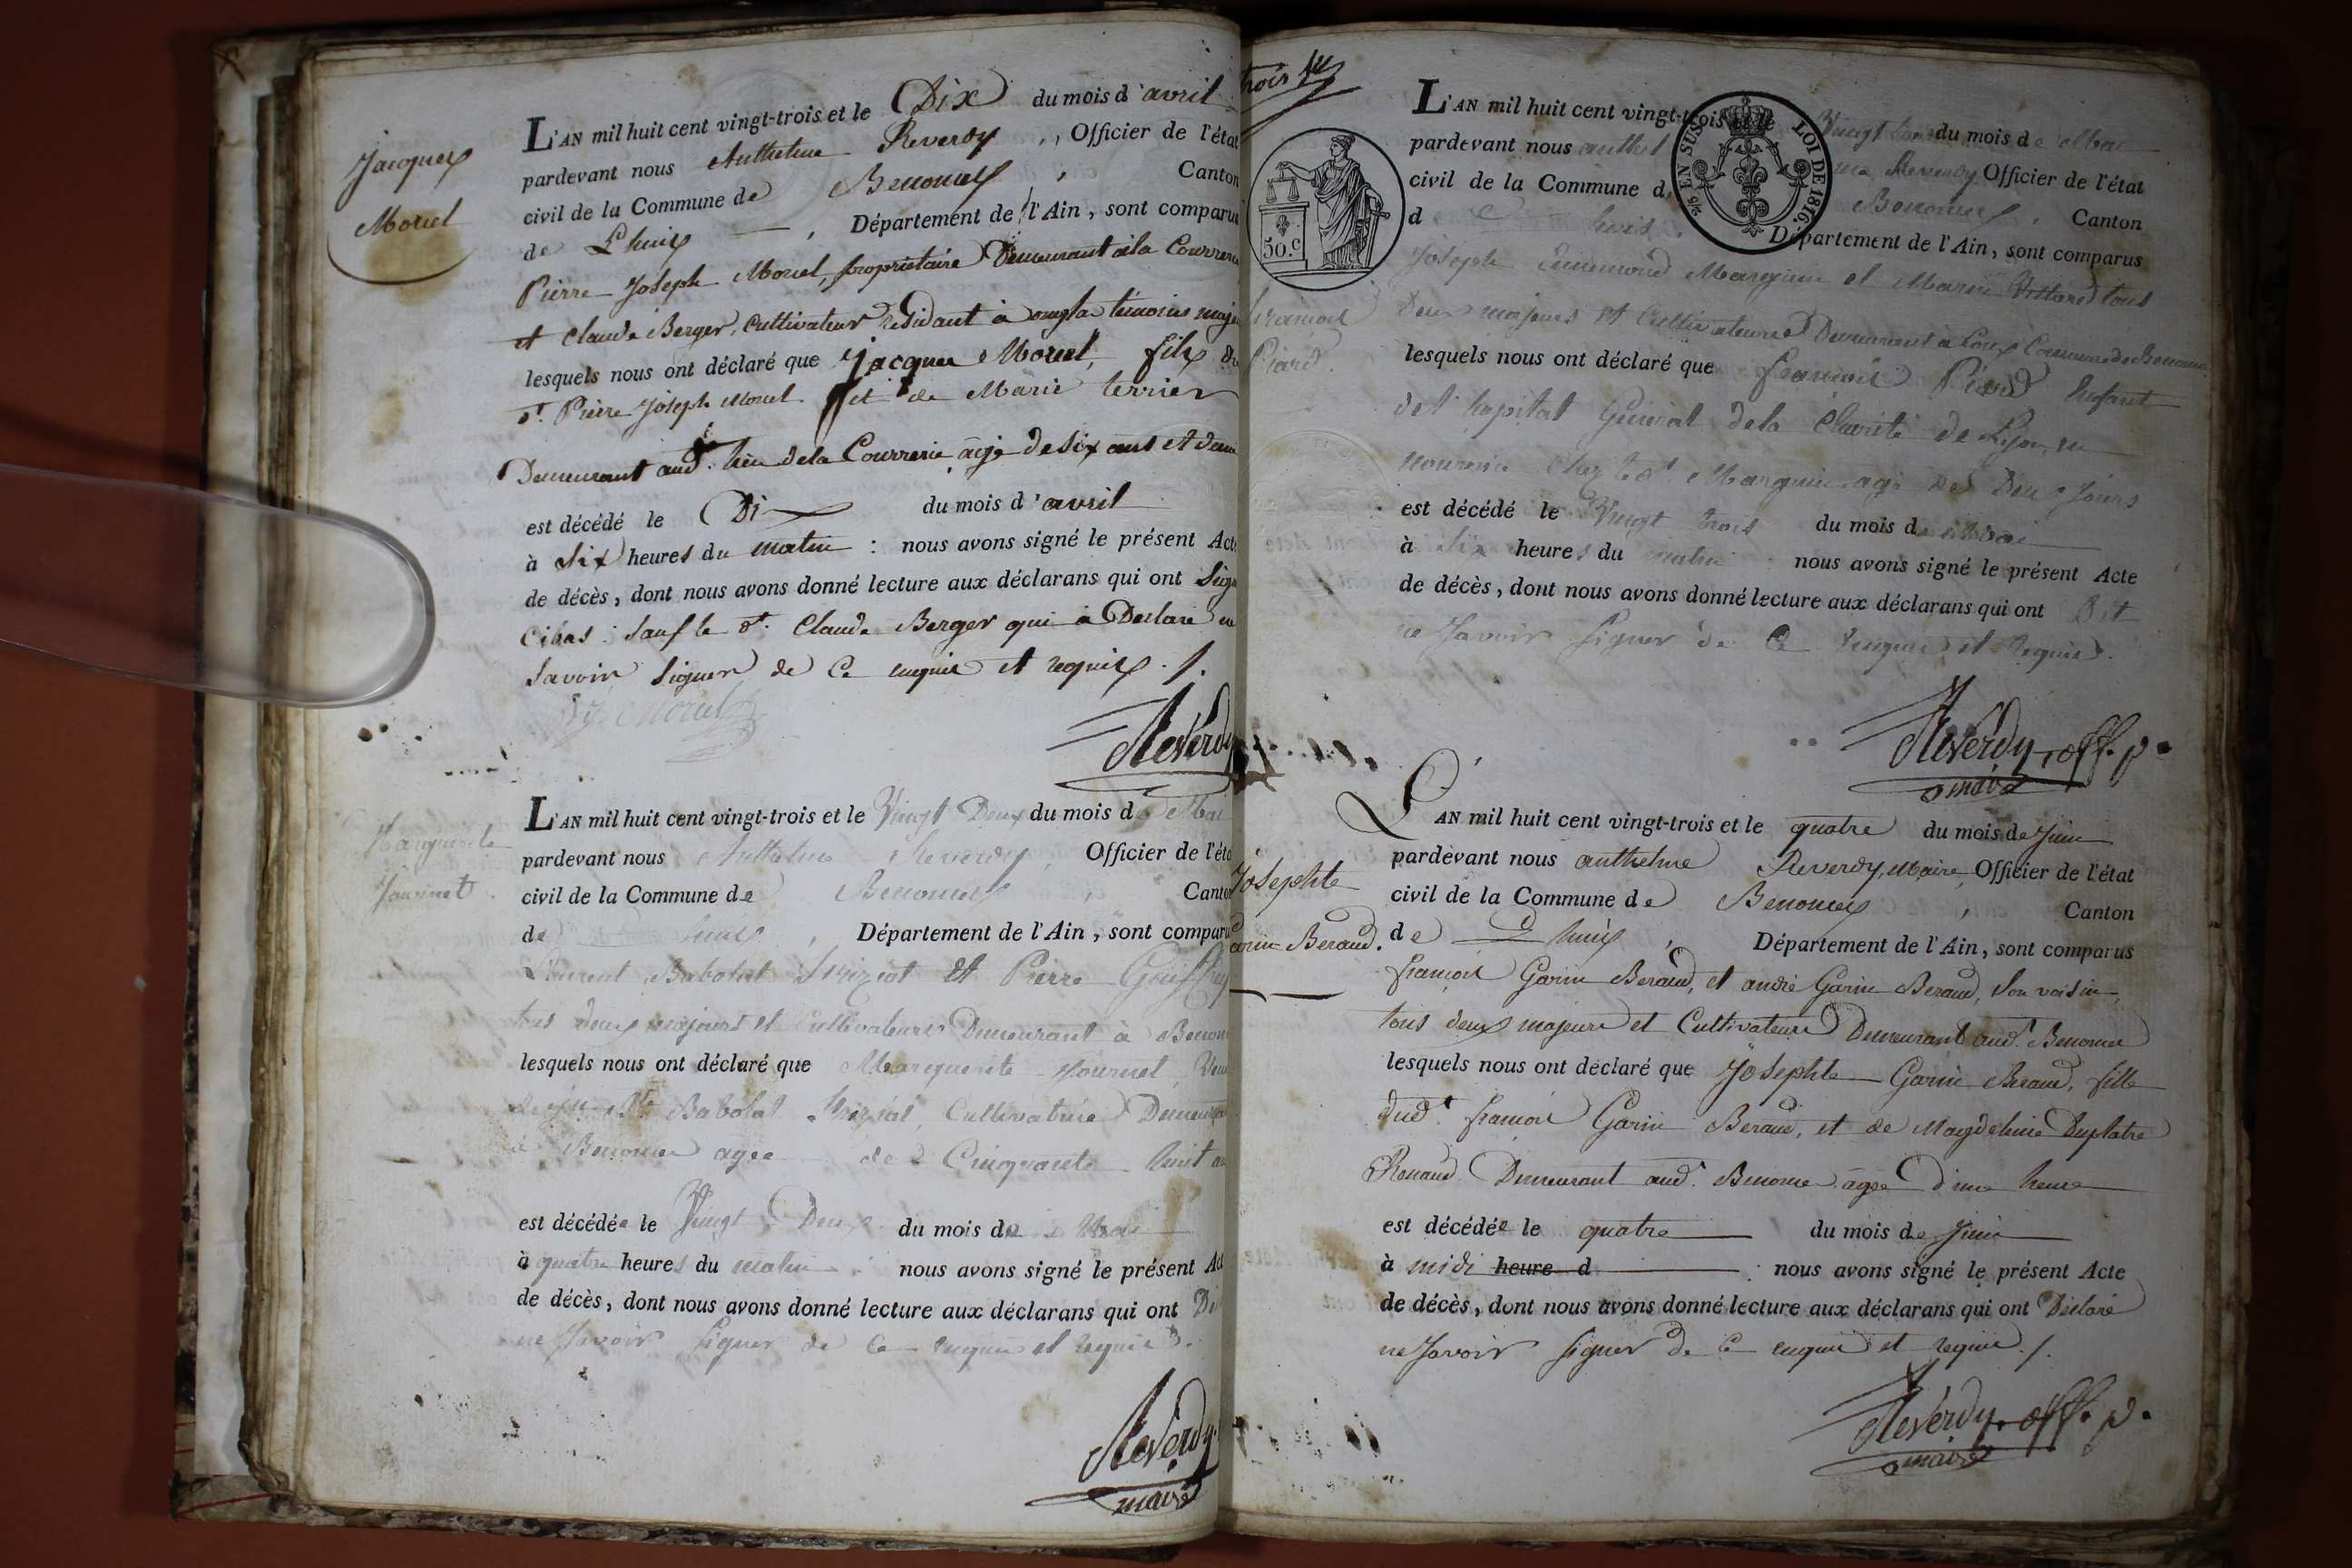 Jacques
Morel
L'AN mil huit cent vingt-trois et le Dix du mois d'avril
pardevant nous Anthelme Reverdy, Officier de l'état
civil de la Commune de Benonces, Canton
de Lhuis, Département de l'Ain, sont comparus
Pierre Joseph Morel, propriétaire Demeurant à la Courrerie
et Claude Berger, Cultivateur résidant à ongla témoins maje
lesquels nous ont déclaré que jacque Morel, fils du
dt. Pierre Joseph Morel et de Marie terrier
Demeurant aud. lieu de la Courrerie âgé de six ans et demi
est décédé le Dix du mois d'avril
à six heures du matin : nous avons signé le présent Acte
de décès, dont nous avons donné lecture aux déclarans qui ont signé
sauf le dt. Claude Berger qui a Déclaré ne
savoir signer de ce enquis et requis ./.
Morel
Reverdy
Marguerite
Journet
L'AN mil huit cent vingt-trois et le Vingt Deux du mois de Mai
pardevant nous Anthelme Reverdy Officier de l'état
civil de la Commune de Benonces, Canton
de Lhuis, Département de l'Ain, sont comparus
Laurent Babolat et Pierre
tous deux majeurs et Cultivateurs Demeurant à Benonces
lesquels nous ont déclaré que Marguerite Journet, Veuve
Babolat Cultivatrice Demeurant
à Benonces agée de Cinquante huit ans
est décédée le Vingt Deux du mois de Mai
à quatre heures du matin : nous avons signé le présent Acte
de décès, dont nous avons donné lecture aux déclarans qui ont Dit
ne savoir signer de ce enquis et requis.
Reverdy
maire
trois
50.c
EN SUS
LOI DE 1816.
françois
Piard.
L'AN mil huit cent vingt-trois et le Vingt trois du mois de Mai
pardevant nous anthelme Reverdy Officier de l'état
civil de la Commune de Benonces, Canton
de Lhuis, Département de l'Ain, sont comparus
Joseph Ennemond Marguin et Marin tous
Deux majeurs et Cultivateurs Demeurant à Commune de Benonces
lesquels nous ont déclaré que françois Piard Enfant
de l'hopital Général de la Charité de Lyon, en
nourrice Chez le dt. Marguin agé De Dix Jours
est décédé le Vingt trois du mois de Mai
à Six heures du matin : nous avons signé le présent Acte
de décès, dont nous avons donné lecture aux déclarans qui ont Dit
ne savoir signer de ce enquis et requis.
Reverdy, off. p.
maire
Josephte
Garin Beraud.
L'AN mil huit cent vingt-trois et le quatre du mois de Juin
pardevant nous anthelme Reverdy, Maire, Officier de l'état
civil de la Commune de Benonces, Canton
de Lhuis, Département de l'Ain, sont comparus
françois Garin Beraud, et andré Garin Beraud, son voisin,
tous deux majeurs et Cultivateurs Demeurant aud. Benonces
lesquels nous ont déclaré que Josephte Garin Beraud, fille
dudt. françois Garin Beraud, et de Magdeleine Duplatre
Renaud Demeurant aud. Benonces agée d'une heure
est décédée le quatre du mois de Juin
à midi heure d : nous avons signé le présent Acte
de décès, dont nous avons donné lecture aux déclarans qui ont Déclaré
ne savoir signer de ce enquis et requis ./.
Reverdy, off. p.
maire